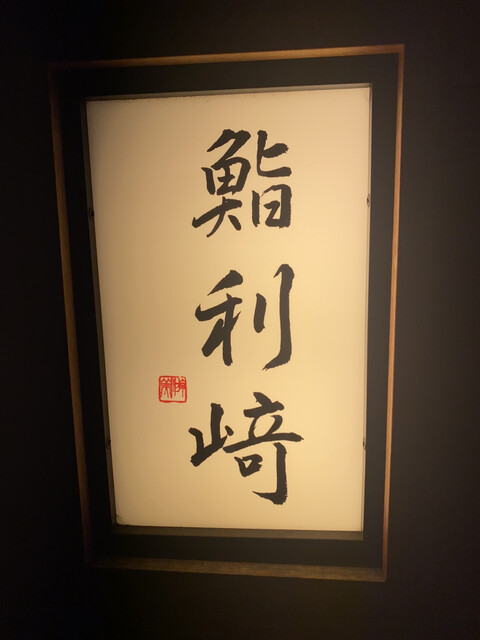 鮨利﨑